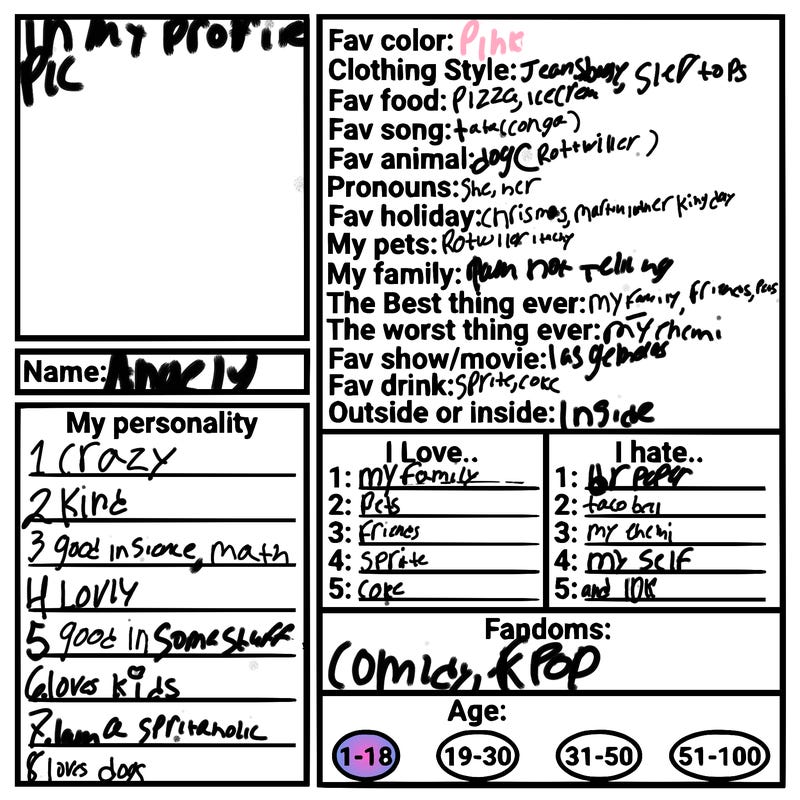 In my profile
Pic
Name: Angely
My personality
1 Crazy
2 Kind
3 good in sience, math
4 Lovly
5 good in some stuff
6 loves kids
7. I am a spritaholic
8 loves dogs
Fav color: Pink
Clothing Style: Jeans baggy, Slev tops
Fav food: Pizza, icecream
Fav song: tata (conga)
Fav animal: dog (Rottwiller)
Pronouns: She, her
Fav holiday: Chrismas, martin luther king day
My pets: Rotwiller
My family: am not telling
The Best thing ever: my family, friends, Pets
The worst thing ever: my chemi
Fav show/movie: las gemelas
Fav drink: Sprite, coke
Outside or inside: Inside
I Love..
1: my family
2: Pets
3: Friends
4: Sprite
5: Coke
I hate..
1: Dr peper
2: taco bell
3: my chemi
4: my self
5: and IDK
Fandoms:
Comics, Kpop
Age:
1-18 19-30 31-50 51-100